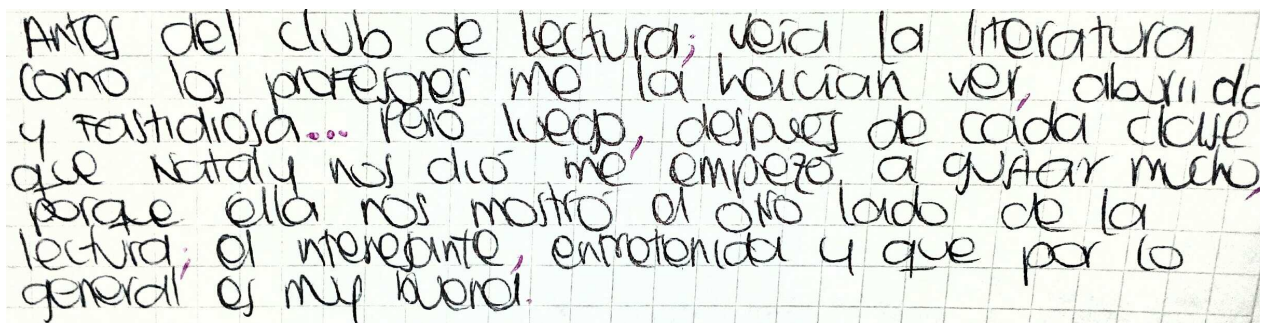 Antes del club de lectura; veía la literatura
como los profesores me la hacían ver, aburrida
y fastidiosa... Pero luego, después de cada clase
que Nataly nos dió me empezó a gustar mucho,
porque ella nos mostró el otro lado de la
lectura; el interesante, entretenida y que por lo
general es muy buena.